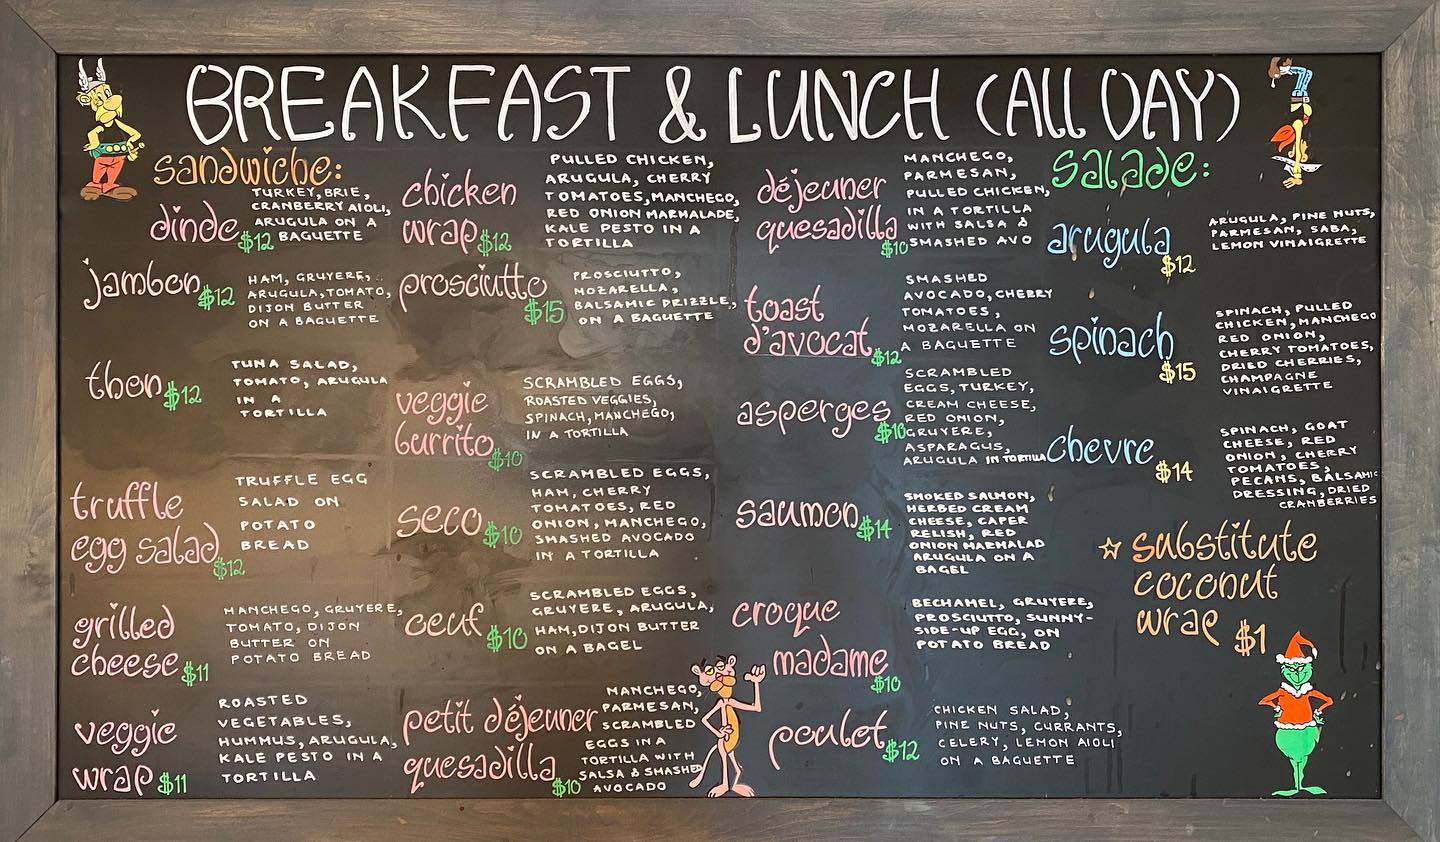 BREAKFAST & LUNCH (All DAY)
sandwiche:
dinde $12
TURKEY, BRIE,
CRANBERRY AIOLI,
ARUGULA ON A
BAGUETTE
jambon $12
HAM, GRUYERE,
ARUGULA, TOMATO,
DIJON BUTTER
ON A BAGUETTE
thon $12
TUNA SALAD,
TOMATO, ARUGULA
IN A
TORTILLA
truffle
egg salad $12
TRUFFLE EGG
SALAD ON
POTATO
BREAD
grilled
cheese $11
MANCHEGO, GRUYERE,
TOMATO, DIJON
BUTTER ON
POTATO BREAD
veggie
wrap $11
ROASTED
VEGETABLES,
HUMMUS, ARUGULA,
KALE PESTO IN A
TORTILLA
chicken
wrap $12
PULLED CHICKEN,
ARUGULA, CHERRY
TOMATOES, MANCHEGO,
RED ONION MARMALADE,
KALE PESTO IN A
TORTILLA
prosciutto
$15
PROSCIUTTO,
MOZARELLA,
BALSAMIC DRIZZLE,
ON A BAGUETTE
veggie
burrito $10
SCRAMBLED EGGS,
ROASTED VEGGIES,
SPINACH, MANCHEGO,
IN A TORTILLA
seco $10
SCRAMBLED EGGS,
HAM, CHERRY
TOMATOES, RED
ONION, MANCHEGO,
SMASHED AVOCADO
IN A TORTILLA
oeuf $10
SCRAMBLED EGGS,
GRUYERE, ARUGULA,
HAM, DIJON BUTTER
ON A BAGEL
petit déjeuner
quesadilla $10
MANCHEGO,
PARMESAN,
SCRAMBLED
EGGS IN A
TORTILLA WITH
SALSA & SMASHED
AVOCADO
déjeuner
quesadilla $10
MANCHEGO,
PARMESAN,
PULLED CHICKEN,
IN A TORTILLA
WITH SALSA &
SMASHED AVO
toast
d'avocat $12
SMASHED
AVOCADO, CHERRY
TOMATOES,
MOZARELLA ON
A BAGUETTE
asperges $10
SCRAMBLED
EGGS, TURKEY,
CREAM CHEESE,
RED ONION,
GRUYERE,
ASPARAGUS,
ARUGULA IN TORTILLA
saumon $14
SMOKED SALMON,
HERBED CREAM
CHEESE, CAPER
RELISH, RED
ONION MARMALAD
ARUGULA ON A
BAGEL
croque
madame
$10
BECHAMEL, GRUYERE,
PROSCIUTTO, SUNNY-
SIDE-UP EGG, ON
POTATO BREAD
poulet $12
CHICKEN SALAD,
PINE NUTS, CURRANTS,
CELERY, LEMON AIOLI
ON A BAGUETTE
Salade:
arugula
$12
ARUGULA, PINE NUTS,
PARMESAN, SABA,
LEMON VINAIGRETTE
spinach
$15
SPINACH, PULLED
CHICKEN, MANCHEGO
RED ONION,
CHERRY TOMATOES,
DRIED CHERRIES,
CHAMPAGNE
VINAIGRETTE
chevre
$14
SPINACH, GOAT
CHEESE, RED
ONION, CHERRY
TOMATOES,
PECANS, BALSAMIC
DRESSING, DRIED
CRANBERRIES
☆ substitute
coconut
wrap $1